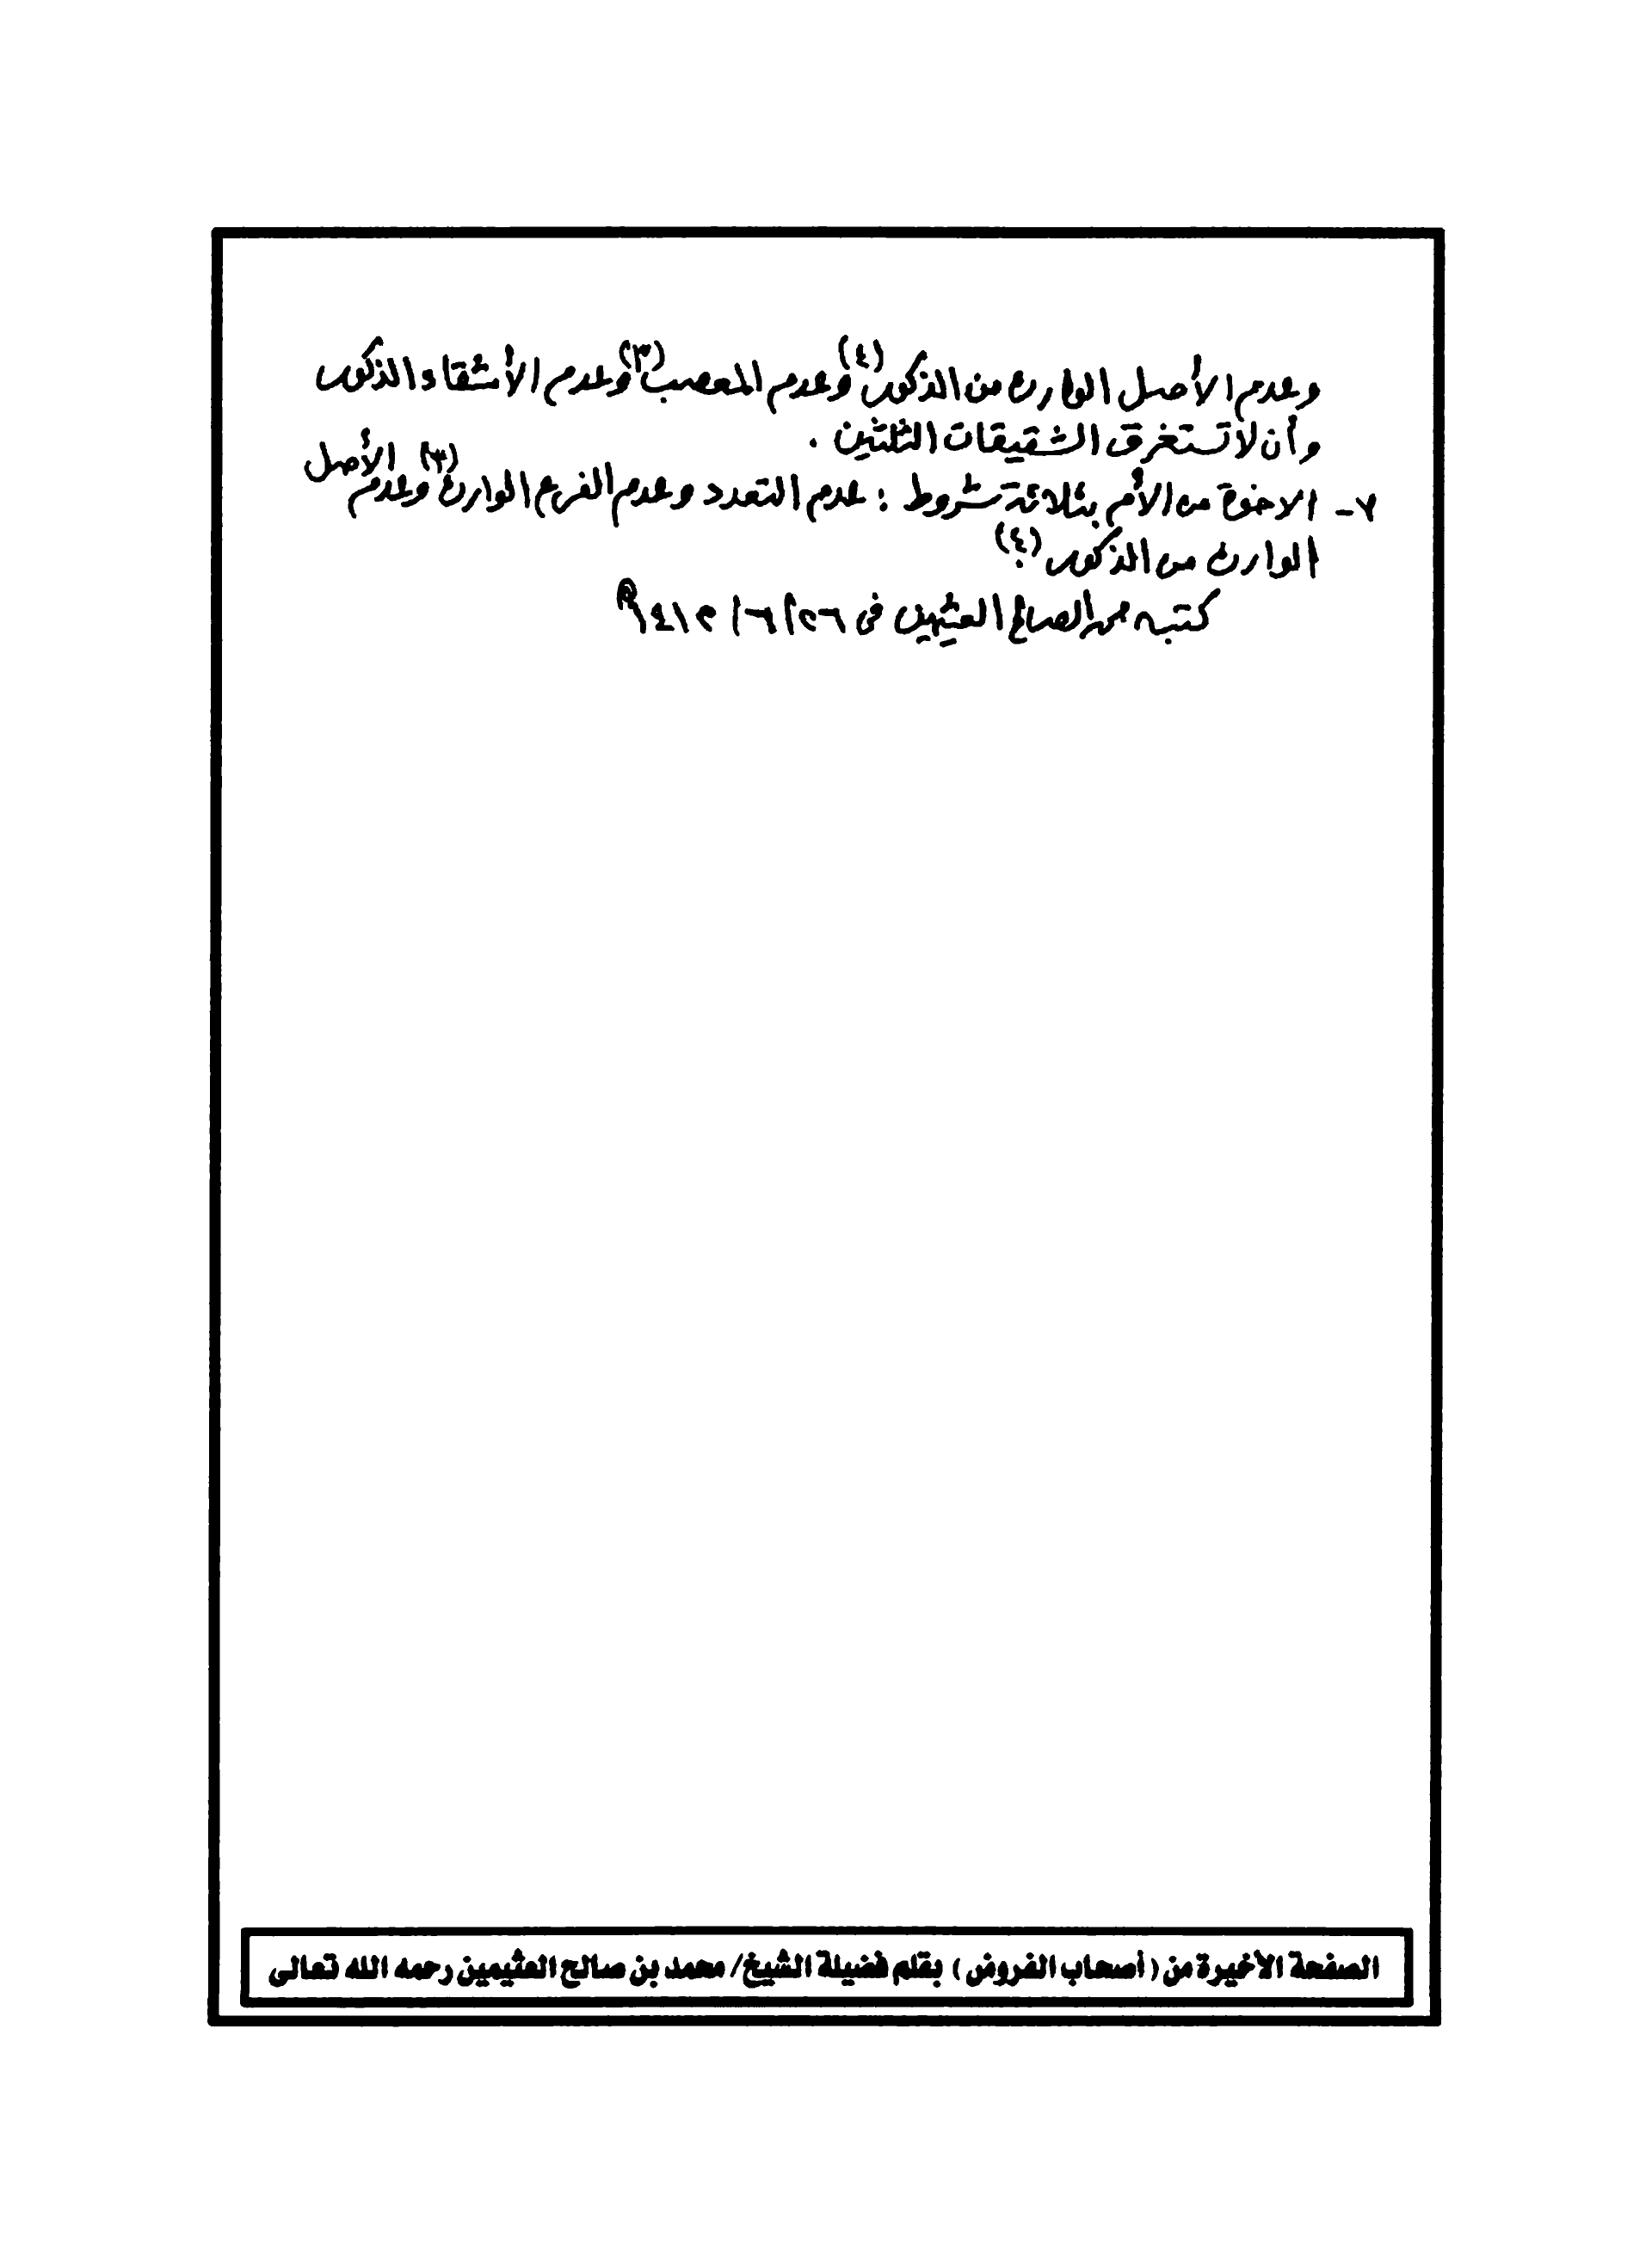 وعدم الأصل الوارث من الذكور (٤) وعدم المعصب (٣) وعدم الأشقاء الذكور
وأن لا تستغرق الشقيقات الثلثين .
٧- الاخوة من الأم بثلاثة شروط : عدم التعدد وعدم الفرع الوارث (٣) وعدم الأصل
الوارث من الذكور (٤)
كتبه محمد الصالح العثيمين في ٢٦/٦/١٤١٢هـ
الصفحة الأخيرة من (أصحاب الفروض) بقلم فضيلة الشيخ/ محمد بن صالح العثيمين رحمه الله تعالى